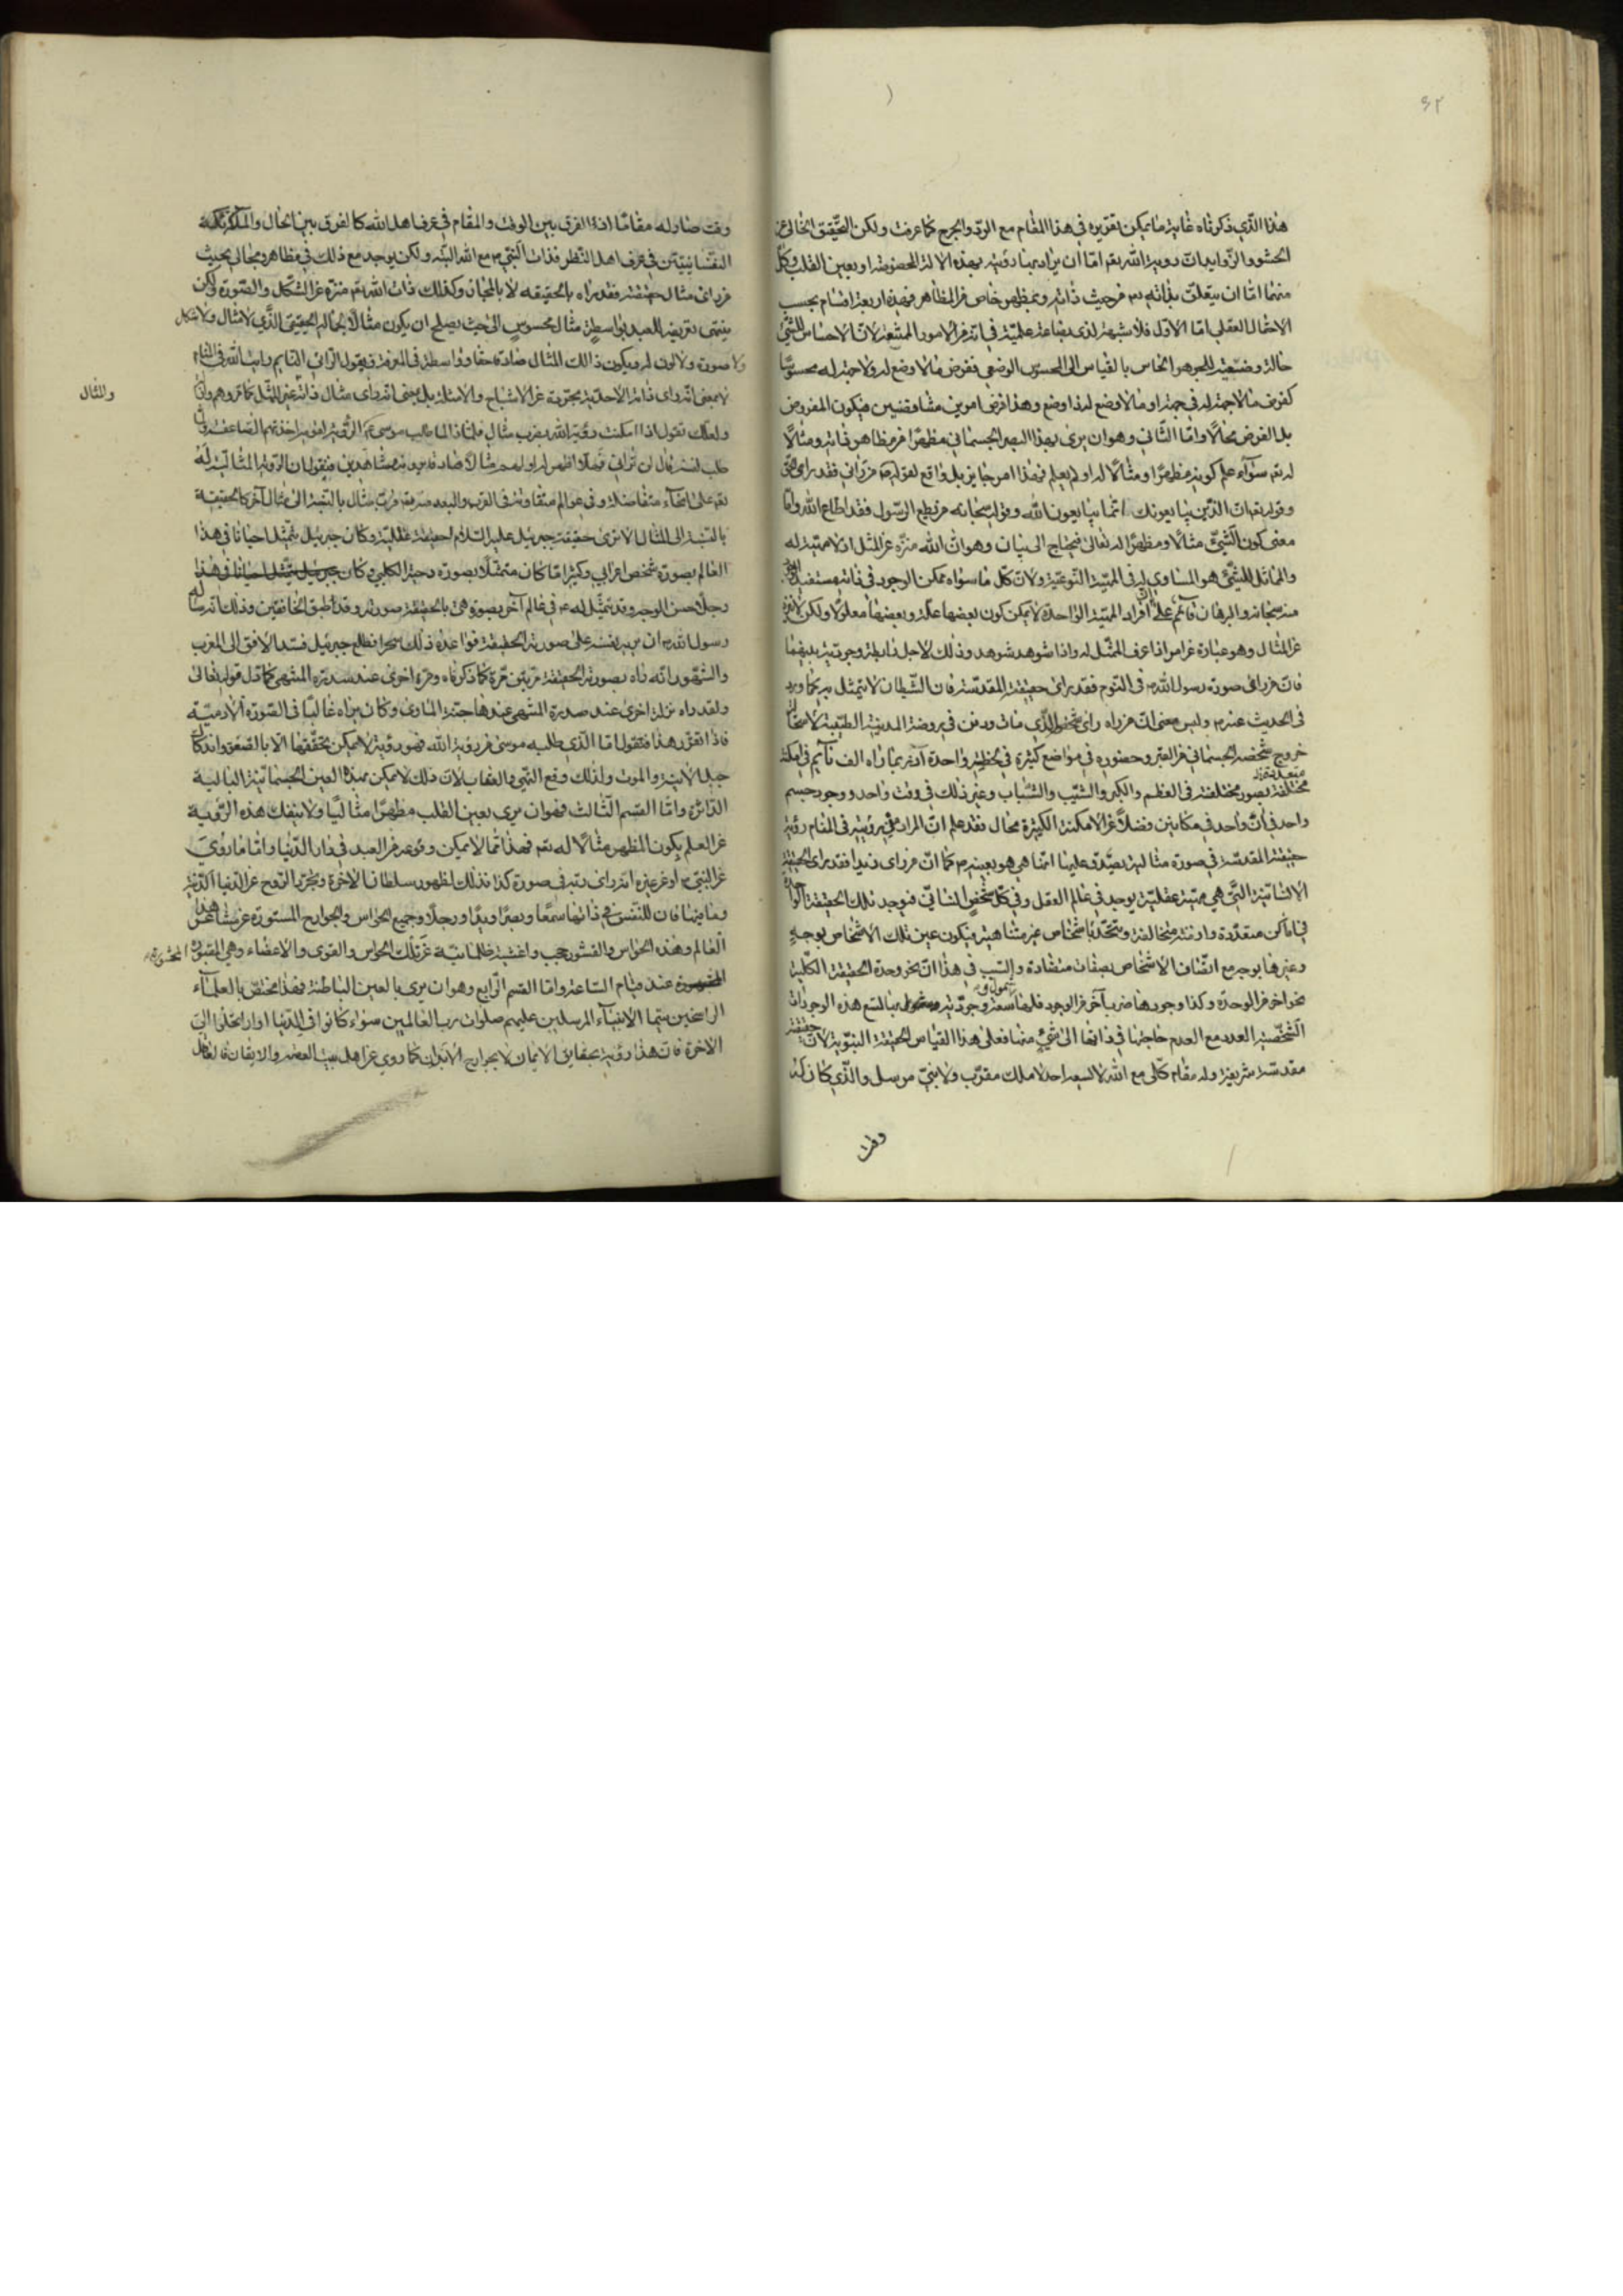 ٤٢
هذا الذي ذكرناه غاية ما يمكن تقريره في هذا المقام مع الردّ والجرح كما عرفت ولكن التحقيق الخالي عن
الحشو والزوايد ان رؤية الله تعم امّا ان يراد بها رؤيته بهذه الالة المخصوصة او بعين القلب وكلّ
منهما امّا ان يتعلق بذاته تعم من حيث ذاته وبمظهر خاص من المظاهر فهذه اربعة اقسام بحسب
الاحتمال العقلي امّا الاول فلا شبهة لذي بضاعة علميّة في انه من الامور الممتنعة لانّ الاحساس للشئ
حالة وضعيّة للجوهر الحاس بالقياس الى المحسوس الوضعي ففرض ما لا وضع له ولا جهة له محسوسًا
كفرض ما لا جهة له في جهة او ما لا وضع له ذا وضع وهذا فرض امرين متناقضين فيكون المفروض
بل الفرض محالًا وامّا الثّاني وهو ان يرى بهذا البصر الجسماني مظهرًا من مظاهر ذاته ومثالًا
له تعم سوآء علم كونه مظهرًا ومثالًا له او لم يعلم فهذا امر جايز بل واقع لقوله من رآني فقد رأى الحق
وقوله تعم انّ الذّين يبايعونك انّما يبايعون الله وقوله سبحانه من يطع الرّسول فقد اطاع الله وامّا
معنى كون الشّئ مثالًا ومظهرًا له تعالى فيحتاج الى بيان وهو انّ الله منزّه عن المثل اذ لا مهيّة له
والمماثل للشئ هو المساوي له في المهيّة النّوعيّة ولانّ كلّ ما سواه ممكن الوجود في ذاته مستفيد الوجود
منه سبحانه والبرهان قائم على ان افراد المهيّة الواحدة لا يمكن كون بعضها علّة وبعضها معلولًا ولكن لا منزه
عن المثال وهو عبارة عن امر اذا عرف الممثّل له واذا شوهد شوهد وذلك لاجل رابطة وجوديّة بينهما
فانّ من رأى صورة رسول الله ص في النّوم فقد رأى حقيقته المقدّسة فان الشّيطان لا يتمثل به كما ورد
في الحديث عنه ص وليس معنى انّ من رآه رأى شخصه الذّي مات ودفن في روضة المدينة الطيّبة لاستحالة
خروج شخصه الجسماني من القبر وحضوره في مواضع كثيرة في لحظة واحدة اذ ربما رآه الف نائم في امكنة
متعددة
مختلفة بصور مختلفة في العظم والكبر والشّيب والشّباب وغير ذلك في وقت واحد ووجود جسم
واحد في آن واحد في مكانين فضلًا عن الامكنة الكثيرة محال فقد علم انّ المراد من رؤيته في المنام رؤية
حقيقته المقدّسة في صورة مثالية يصدّق عليها انّما هي هو بعينه ص كما انّ من رأى زيدا فقد رأى الحقيقة
الانسانيّة التّي هي مهيّة عقليّة يوجد في عالم العقل وفي كلّ شخص انسانيّ فيوجد تلك الحقيقة الواحدة
في اماكن متعدّدة وازمنة متخالفة وتتحّد باشخاص غير متناهية فيكون عين تلك الاشخاص بوجهٍ
وغيرها بوجه مع اتّصاف الاشخاص بصفات متضادة والسّبب في هذا انّ نحو وحدة الحقيقة الكلّية
نحو آخر من الوحدة وكذا وجودها ضرب آخر من الوجود فلها سعة وجوديّة وشمول بها لتسع هذه الوجودات
الشّخصيّة العدديّة مع العدم حاجتها في ذاتها الى شئ منها فعلى هذا القياس الحقيقة النّبويّة لانّ حقيقته
مقدّسة شريفة وله مقام كلّي مع الله لا يسعه احد لا ملك مقرّب ولا نبيّ مرسل والذّي كان له
وقت
وقت صار له مقامًا اذ الفرق بين الوقت والمقام في عرف اهل الله كالفرق بين الحال والملكة
النفسانيّتين في عرف اهل النّظر فذات النّبي ص مع الله البتّه ولكن يوجد مع ذلك في مظاهر ومجالي بحيث
من رأى مثال حقيقته فقد رآه بالحقيقه لا بالمجاز وكذلك ذات الله تعم منزه عن الشّكل والصّورة ولكن
ينتهي تعريفه للعبد بواسطة مثال محسوس الى حيث يصلح ان يكون مثالًا لجماله الحقيقي الذّي لا مثال ولا شكل
ولا صورة ولا لون له ويكون ذالك المثال صادقا حقا وواسطة في المعرفة فيقول الرّائي النايم رأيت الله في المنام
لا بمعنى انّه رأى ذاته الاحديّة مجرّدة عن الاشباح والامثلة بل بمعنى انّه رأى مثال ذاته غير المثل كما تروهم
والمثال
ولعلّك تقول اذا امكنت رؤية الله بضرب مثال فلماذا لما طلب موسى ع الرّؤية لقومه اخذتهم الصّاعقة ولمّا
طلب لنفسه قال لن تراني فهلّا اظهر له او لهم مثالًا صادقا يرونه مشاهدين فنقول ان الرّؤية المثاليّة له
تعم على انحآء متفاضلة وفي عوالم متفاوتة في القرب والبعد منه تعم وربّ مثال بالنّسبة الى مثال آخر كالحقيقة
بالنّسبة الى المثال الا ترى حقيقة جبرئيل عليه السّلام لحقيقة عقليّة وكان جبرئيل يتمثّل احيانًا في هذا
العالم بصورة شخص اعرابي وكثيرا ما كان متمثّلًا بصورة دحية الكلبي وكان
رجلًا حسن الوجه وقد تمثّل له ع في عالم آخر بصورة هي بالحقيقة صورته وقد طبق الخافقين وذلك انّه سأله
رسول الله ص ان يريه نفسه على صورته الحقيقة فواعده ذلك بحرا فطلع جبرئيل فسّد الافق الى المغرب
والمشهور انّه رآه بصورته الحقيقة مرّتين مرّة كما ذكرناه ومرة اخرى عند سدرة المنتهى كما دل قوله تعالى
ولقد رآه نزلة اخرى عند سدرة المنتهى عندها جنّة المأوى وكان يراه غالبًا في الصّورة الادميّة
فاذا تقرّر هذا فنقول امّا الذّي طلبه موسى من رؤية الله فهو رؤية لا يمكن تحقّقها الّا بالصّعق واندكاك
جبل الانيّة والموت ولذلك وقع النّهي والعقاب لانّ ذلك لا يمكن بهذه العين الجسمانيّة البالية
الدّاثرة وامّا القسم الثّالث فهو ان يرى بعين القلب مظهرًا مثاليًا ولا ينفك هذه الرّؤية
عن العلم بكون المظهر مثالًا له تعم فهذا ممّا لا يمكن وقوعه من العبد في دار الدّنيا وامّا ما روي
عن النّبي ص او عن غيره انه رأى ربّه في صورة كذا فذلك لظهور سلطان الاخرة وتجرّد الرّوح عن الدّنيا الدّنيّة
وما فيها فان للنّفس في ذاتها سمعًا وبصرًا ويدًا ورجلًا وجميع الحواس والجوارح المستورة عن مشاعر هذا
العالم وهذه الحواس والقشور حجب واغشية ظلمانيّة عن تلك الحواس والقوى والاعضاء وهي المقبورة المحشورة
عند قيام السّاعة وامّا القسم الرّابع وهو ان يرى بالعين الباطنة فهذا مختصّ بالعلمآء
الراسخين سيّما الانبيآء المرسلين عليهم صلوات رب العالمين سوآء كانوا في الدّنيا او ارتحلوا الى
الاخرة فانّ هذا رؤية بحقايق الايمان لا بجوارح الابدان كما روي عن اهل بيت العصمة والايقان